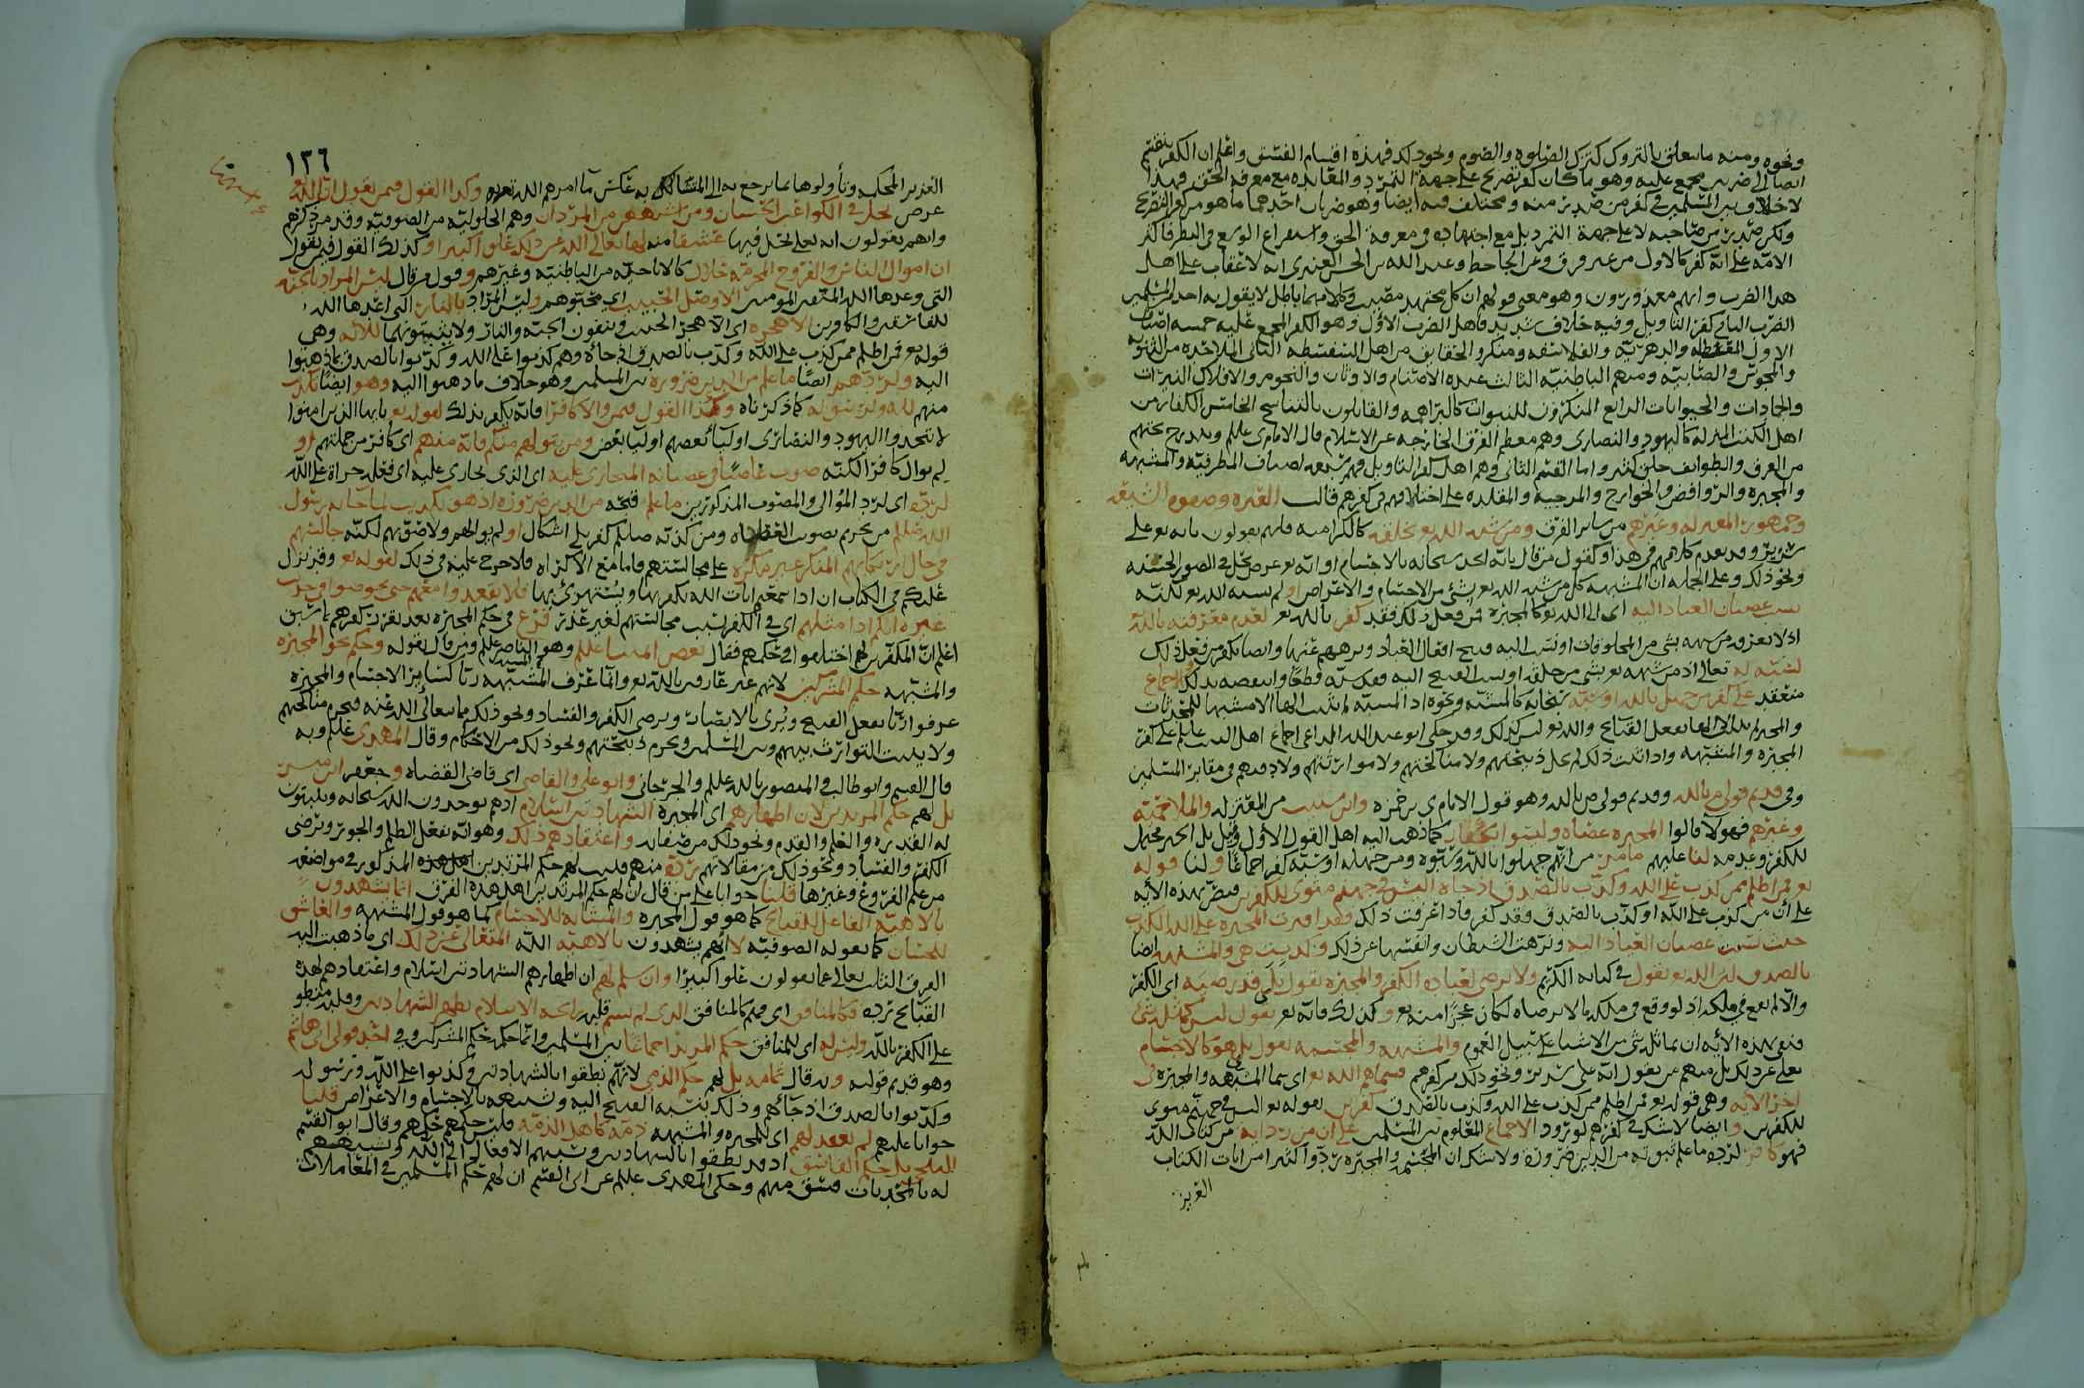 ونحوه ومنه ما يتعلق بالتروك كترك الصلوه والصوم ونحو ذلك فهذه اقسام الفسق واعلم ان الكفر ينقسم
ايضا الى ضربين مجمع عليه وهو ما كان كفر تصريح على جهة التمرد والمعانده مع معرفه الحق فهذا
لا خلاف بين المسلمين في كفر من صدر منه ومختلف فيه ايضا وهو ضربان احدهما ما هو من كفر التصريح
ولكن صدر من صاحبه لا على جهة التمرد بل مع اجتهاده في معرفة الحق واستفراغ الوسع في النظر فاكثر
الامه على انه كفر كالاول من غير فرق وعن الجاحظ وعبد الله بن الحسن العنبري انه لا عقاب على اهل
هذا الضرب وانهم معذورون وهو معنى قولهم ان كل مجتهد مصيب وكلامهما باطل لا يقول به احد من المسلمين
الضرب الثاني كفر التاويل وفيه خلاف شديد فاهل الضرب الاول وهو الكفر المجمع عليه خمسه اصناف
الاول والدهريه والفلاسفه ومنكروا الحقايق من اهل السفسطه الثاني الملاحده من الثنويه
والمجوس والصابيه ومنهم الباطنيه الثالث عبده الاصنام والاوثان والنجوم والافلاك النيرات
والجمادات والحيوانات الرابع المنكرون للنبوات كالبراهمه والقايلون بالتناسخ الخامس الكفار من
اهل الكتب المنزله كاليهود والنصارى وهم معظم الفرق الخارجه عن الاسلام قال الامام ي عليلم ويندرج تحتهم
من الفرق والطوايف خلق كثير واما القسم الثاني وهم اهل كفر التاويل فهم اصناف المطرفيه والمشبهه
والمجبره والروافض والخوارج والمرجيه والمقلده على اختلاف في كفرهم قالت العتره وصفوه الشيعه
وجمهور المعتزله وغيرهم من ساير الفرق ومن شبه الله بخلقه كالكراميه فانهم يقولون بانه تع على
سرير وقد تقدم كلامهم في هذا وكقول من قال بانه سبحانه بالاجسام او انه تع عرض يحل في الصور الحسنه
ونحو ذلك وعلى الجمله ان المشبهه كل من شبه الله تع بشي من الاجسام والاعراض او لم يشبه الله تع لكنه
نسب عصيان العباد اليه اي الى الله تع كالمجبره فمن فعل ذلك فقد كفر بالله تع لعدم معرفته بالله
لشبه له تعالى اذ من شبهه تع بشي من خلقه او نسب القبيح اليه
منعقد على كفر من جهل بالله او سبه سبحانه
المجبره والمشبهه واذا ثبت ذلك لم تحل ذبيحتهم ولا مناكحتهم ولا موارثتهم ولا دفنهم في مقابر المسلمين
وفي قديم قولي م بالله وقديم قولي ص بالله وهو قول الامام ي بن حمزه وابن شبيب من المعتزله والملاحميه
وغيرهم فهولا قالوا المجبره عصاه وليسوا بكفار كما ذهب اليه اهل القول الاول
للكفر وعدمه لنا عليهم ما مر من انهم جهلوا بالله وسبوه ومن جهله او سبه كفر اجماعا ولنا قوله
تع فمن اظلم ممن كذب على الله وكذب بالصدق اذ جاه اليس في جهنم مثوى للكفرين فنص بهذه الآيه
على ان من كذب على الله او كذب بالصدق فقد كفر واذا عرفت ذلك وقد افترت المجبره على الله الكذب
حيث نسبت عصيان العباد اليه ونزهت الشيطان وانفسها عن ذلك وكذبت هي والمشبهه ايضا
بالصدق لان الله تع يقول في كتابه الكريم ولا يرضى لعباده الكفر والمجبره تقول بلى قد رضيه اي الكفر
والا لم يقع في ملكه اذ لو وقع في ملكه ما لا يرضاه لكان عجزا منه تع وكذلك فانه تع يقول ليس كمثله شي
فنفى بهذه الآيه ان يماثله شي من الاشيا على سبيل العموم والمشبهه والمجسمه تقول بلى هو كالاجسام
تعالى عن ذلك بل منهم من يقول انه على سرير ونحو ذلك من كفرهم فسماهم الله تع اي سما المشبهه والمجبره في
اخر الآيه وهي قوله تع فمن اظلم ممن كذب على الله وكذب بالصدق كفرين بقوله تع اليس في جهنم مثوى
للكفرين وايضا لا شك في كفرهم لورود الاجماع المعلوم بين المسلمين على ان من رد آيه من كتاب الله
فهو كافر لرده ما علم ثبوته من الدين ضروره ولا شك ان المجسمه والمجبره ردوا كثيرا من ايات الكتاب
العزيز
١٣٦
العزيز المحكمه وتأولوها بما يرجع به الى المتشابه عكس ما امرهم الله به وكذا القول فيمن يقول ان الله
عرض يحل في الكواعب الحسان ومن اشبههن من المردان وهم الحلوليه من الصوفيه وقد مر ذكرهم
وانهم يقولون انه تعلى يحل فيها عشقا منه لها تعالى الله عن ذلك علوا كبيرا وكذلك القول فيمن يقول
ان اموال الناس والفروج المحرمه حلال كالاباحيه من الباطنيه وغيرهم وقول من قال ليس المراد بالجنه
التي وعدها الله المتقين المومنين الا وصل الحبيب اي محبوبهم وليس المراد بالنار التي اعدها الله
للفاسقين والكافرين الا هجره اي الا هجر الحبيب وينفون الجنه والنار ولا يثبتونهما للآيه وهي
قوله تع فمن اظلم ممن كذب على الله وكذب بالصدق اذ جاه وهم كذبوا على الله وكذبوا بالصدق بما ذهبوا
اليه ولردهم ايضا ما علم من الدين ضروره بين المسلمين وهو خلاف ما ذهبوا اليه وهو ايضا تكذيب
منهم لله ولرسوله كما ذكرناه وكذا القول فيمن والا كافرا فانه يكفر بذلك لقوله تع يايها الذين امنوا
لا تتخذوا اليهود والنصارى اوليا بعضهم اوليا بعض ومن يتولهم منكم فانه منهم اي كافر من جملتهم او
لم يوال كافرا لكنه صوب عاصيا في عصيانه المتجارى عليه اي الذي تجارى عليه اي فعله جراة على الله
لرده اي لرد الموالي والمصوب المذكورين ما علم قبحه من الدين ضروره اذ هو تكذيب لما جا به رسول
الله صللم من تحريم تصويب العصاه ومن كذبه صللم كفر بلا اشكال او لم يوالهم ولا صوبهم لكنه جالسهم
في حال ارتكابهم المنكر غير مكره على مجالستهم فاما مع الاكراه فلا حرج عليه في ذلك لقوله تع وقد نزل
عليكم في الكتاب ان اذا سمعتم ايات الله يكفر بها ويستهزئ بها فلا تقعدوا معهم حتى يخوضوا في حديث
غيره انكم اذا مثلهم اي في الكفر بسبب مجالستهم لغير عذر فرع في حكم المجبره بعد تقرر كفرهم بما سبق
اعلم ان المكفرين لهم اختلفوا في حكمهم فقال بعض ايمتنا عليلم وهو الناصر عليلم ومن قال بقوله وحكم نحو المجبره
والمشبهه حكم المشركين لانهم غير عارفين بالله تع وانما عرف المشبهه ربا كساير الاجسام والمجبره
عرفوا ربا يفعل القبيح ويرى بالابصار ويرضى الكفر والفساد ونحو ذلك مما يتعالى الله عنه فيحرم مناكحتهم
ولا يثبت التوارث بينهم وبين المسلمين ويحرم ذبيحتهم ونحو ذلك من الاحكام وقال المهدي عليلم وبه
قال القسم وابو طالب والمنصور بالله عليلم والجرجاني وابو علي والقاضي اي قاضي القضاه وجعفر ابن مبشر
بل لهم حكم المرتدين لان اظهارهم اي المجبره الشهادتين اسلام اذ هم يوحدون الله سبحانه ويثبتون
له القدره والعلم والقدم ونحو ذلك من صفاته واعتقادهم ذلك وهو انه يفعل الظلم والجور ويرضى
الكفر والفساد ونحو ذلك من مقالاتهم رده منهم فثبت لهم حكم المرتدين المذكور في مواضعه
من علم الفروع وغيرها قلنا جوابا على من قال ان لهم حكم المرتدين اهل هذه الفرق انما يشهدون
بالاهيه الفاعل للقبايح كما هو قول المجبره والمشابه للاجسام كما هو قول المشبهه والعاشق
للحسان كما يقوله الصوفيه لا انهم يشهدون بالاهيه الله المتعالي عن ذلك اي ما ذهبت اليه
الفرق الثلث تعالى عما يقولون علوا كبيرا وان سلم لهم ان اظهارهم الشهادتين اسلام واعتقادهم لهذه
القبايح رده فكالمنافق اي فهم كالمنافق الذي لم يشم قلبه رايحه الاسلام يظهر الشهادتين وقلبه منطو
على الكفر بالله وليس له اي للمنافق حكم المرتد اجماعا بين المسلمين وانما حكمه حكم المشركين وفي احد قولي ابي هاشم
وهو قديم قوليه وبه قال ثمامه بل لهم حكم الذمي لانهم نطقوا بالشهادتين وكذبوا على الله ورسوله
وكذبوا بالصدق اذ جاهم وذلك بنسبه القبيح اليه وتشبيهه بالاجسام والاعراض قلنا
جوابا عليهم لم تعقد لهم اي للمجبره والمشبهه ذمه كاهل الذمه فليس حكمهم حكمهم وقال ابو القسم
البلخي بل حكم الفاسق اذ قد نطقوا بالشهادتين ونسبتهم الافعال الى الله وتشبيههم
له بالمحدثات فسق منهم وحكى المهدي عليلم عن ابي القسم ان لهم حكم المسلمين في المعاملات